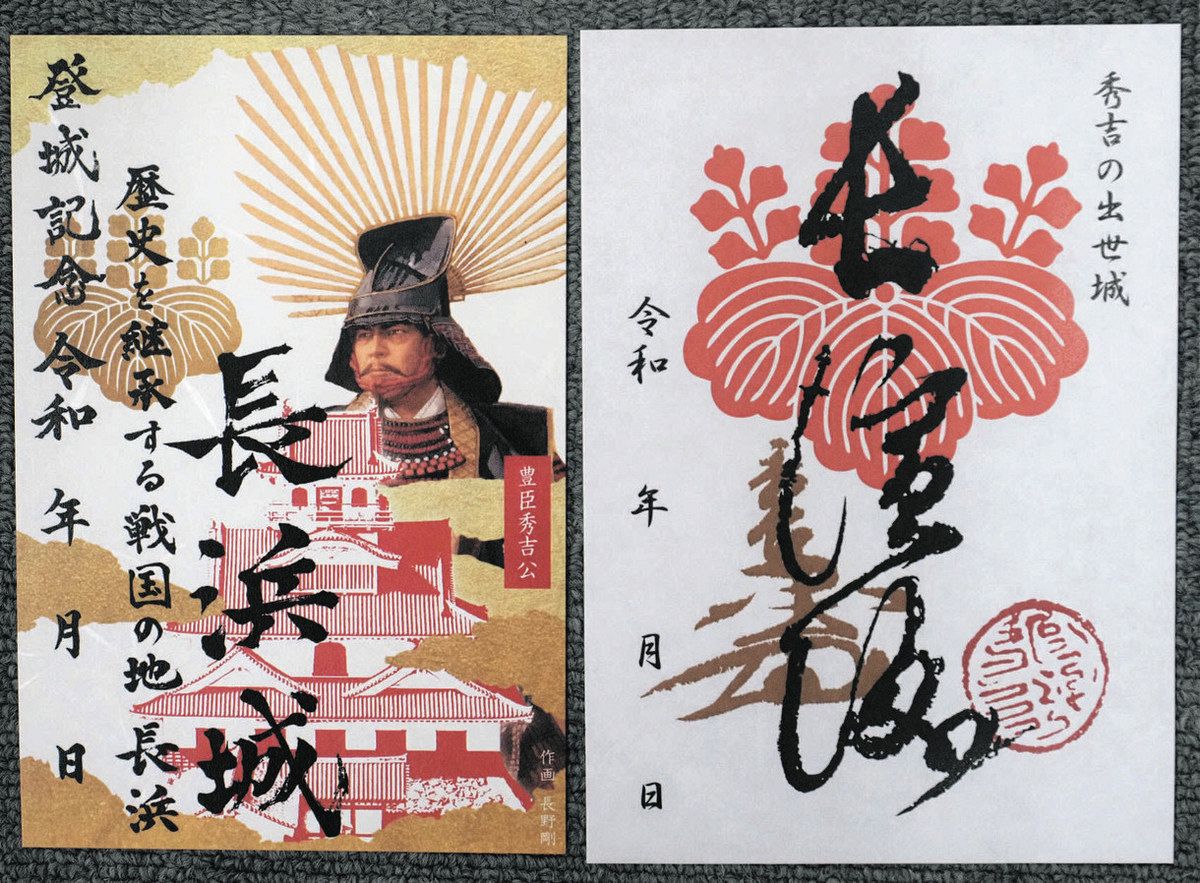 登城記念 令和 年 月 日
歴史を継承する戦国の地 長浜
長浜城
豊臣秀吉公
作画 長野剛
秀吉の出世城
長濱城
令和 年 月 日